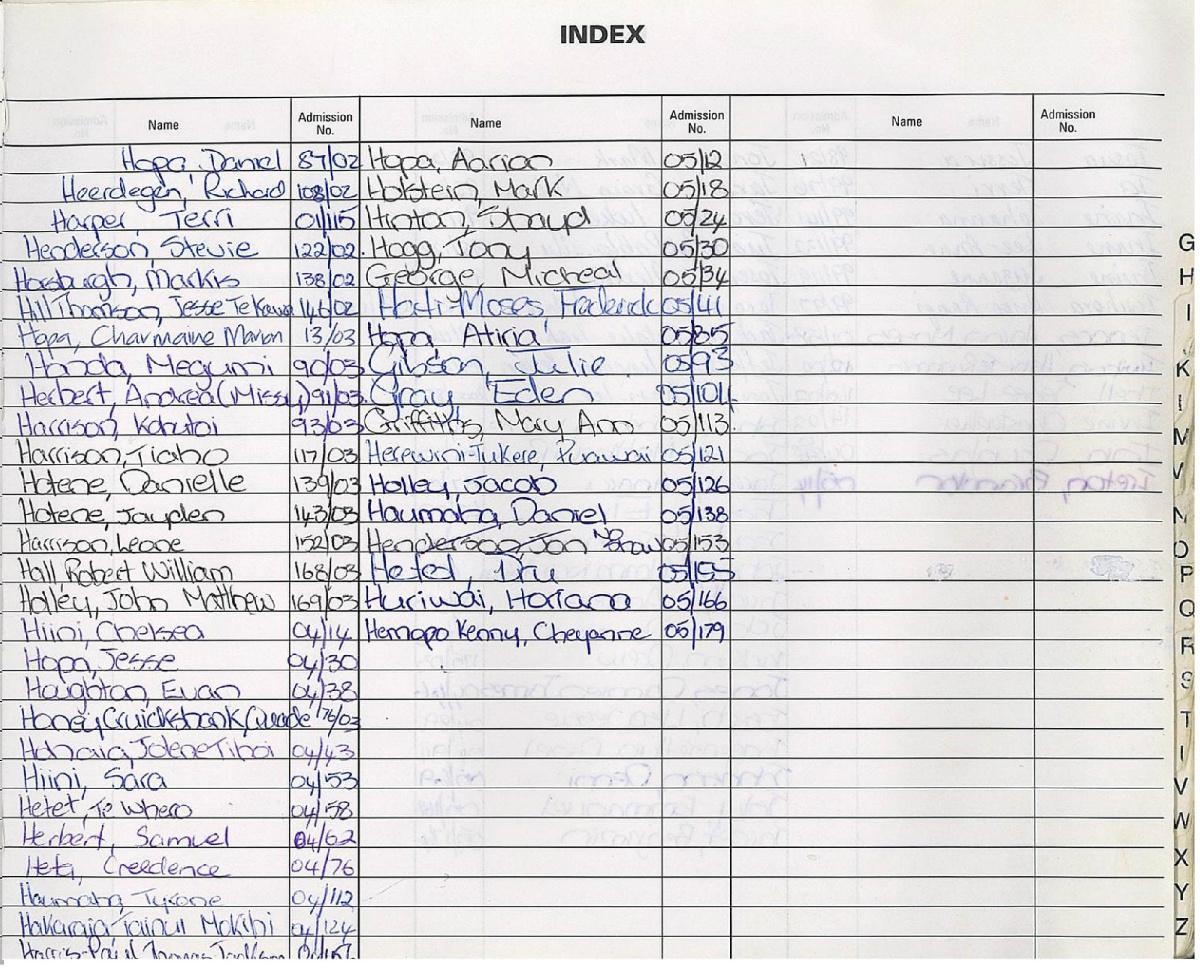 INDEX
Name Admission No. Name Admission No. Name Admission No.
Hopa, Daniel 87/02 Hopa, Aarian 05/12
Heerdegen, Richard 108/02 Holstein, Mark 05/18
Harper, Terri 01/115 Hinton, 05/24
Henderson, Stevie 122/02 Hogg, Tony 05/30
Horsburgh, Markis 138/02 George, Micheal 05/34
Hill Thomson, Jesse Te 146/02 Hoeti-Moses, Frederick 05/41
Hopa, Charmaine Marion 13/03 Hopa Atiria 05/85
Honda, Megumi 90/03 Gibson, Julie 05/93
Herbert, Andrea (Missy) 91/03 Gray, Eden 05/104
Harrison, 93/03 Griffiths, Mary Ann 05/113
Harrison, Tiaho 117/03 Herewini-Tukere, Puawai 05/121
Hotene, Danielle 139/03 Holley, Jacob 05/126
Hotene, Jayden 143/03 Haumaha, Daniel 05/138
Harrison, Leone 152/03 Henderson, Jon No Show 05/153
Hall, Robert William 168/03 Hetet, Dru 05/155
Holley, John Matthew 169/03 Huriwai, Hariana 05/166
Hiini, Chelsea 04/14 Hemopo Kenny, Cheyanne 05/179
Hopa, Jesse 04/30
Houghton, Evan 04/38
Honey Cruickshank, 176/03
Jolene Tihoi 04/43
Hiini, Sara 04/53
Hetet, Te Whero 04/58
Herbert, Samuel 04/62
Heta, Creedence 04/76
Haumaha, Tyrone 04/112
Hakaraia-Tainui Mokihi 04/124
Harris-Paul Thomas
G
H
I
J
K
M
N
O
P
Q
R
S
T
V
W
X
Y
Z